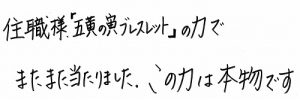 住職様『五黄の寅ブレスレット』の力で
またまた当たりました。この力は本物です